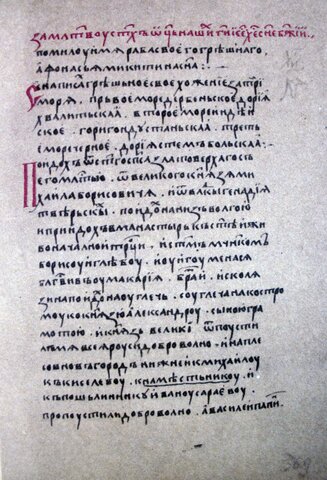 За млтвоу стхъ ѿць нашиⷯ ги ісе хе сне бжии
помилоуи мѧ раба своего грѣшнаго
афонасьѧ микитина сна :·
Написа грѣшьное свое хожение за три
морѧ. прьвое море дербеньское дориѧ
хвалитьскаа. второе море индѣи
ское. горигондустаньскаа. третье
море черное. дориѧ стемъбольскаа :·
Поидох ѿ стго спса златоверхаго съ
его млтью. ѿ великого кнѧзѧ ми
хаила борисовичѧ. и ѿ влкы генадиѧ
твѣрьскыⷯ. поидоⷯ на низъ волгою
и приидохъ в манастырь къ стѣи жи
воначалнои трци. и стмъ мчнкомъ
борисоу и глѣбоу. и оу игоумена сѧ
блгвивъ оу макариѧ. братіи. и с колѧ
зина поидоⷯ на оуглечь. с оуглеча на костро
моу ко кнѧзю александроу. с ыною гра
мотою. и кнѧзь великіи ѿпоусти
лъ мѧ всеѧ роуси доброволно. и на пле
со в новгородъ нижнеи к михаилоу
къ киселевоу. к намѣстьникоу. и
къ пошьлинникоу иваноу сараевоу.
пропоустили доброволно. а василеи папиⷩ
369